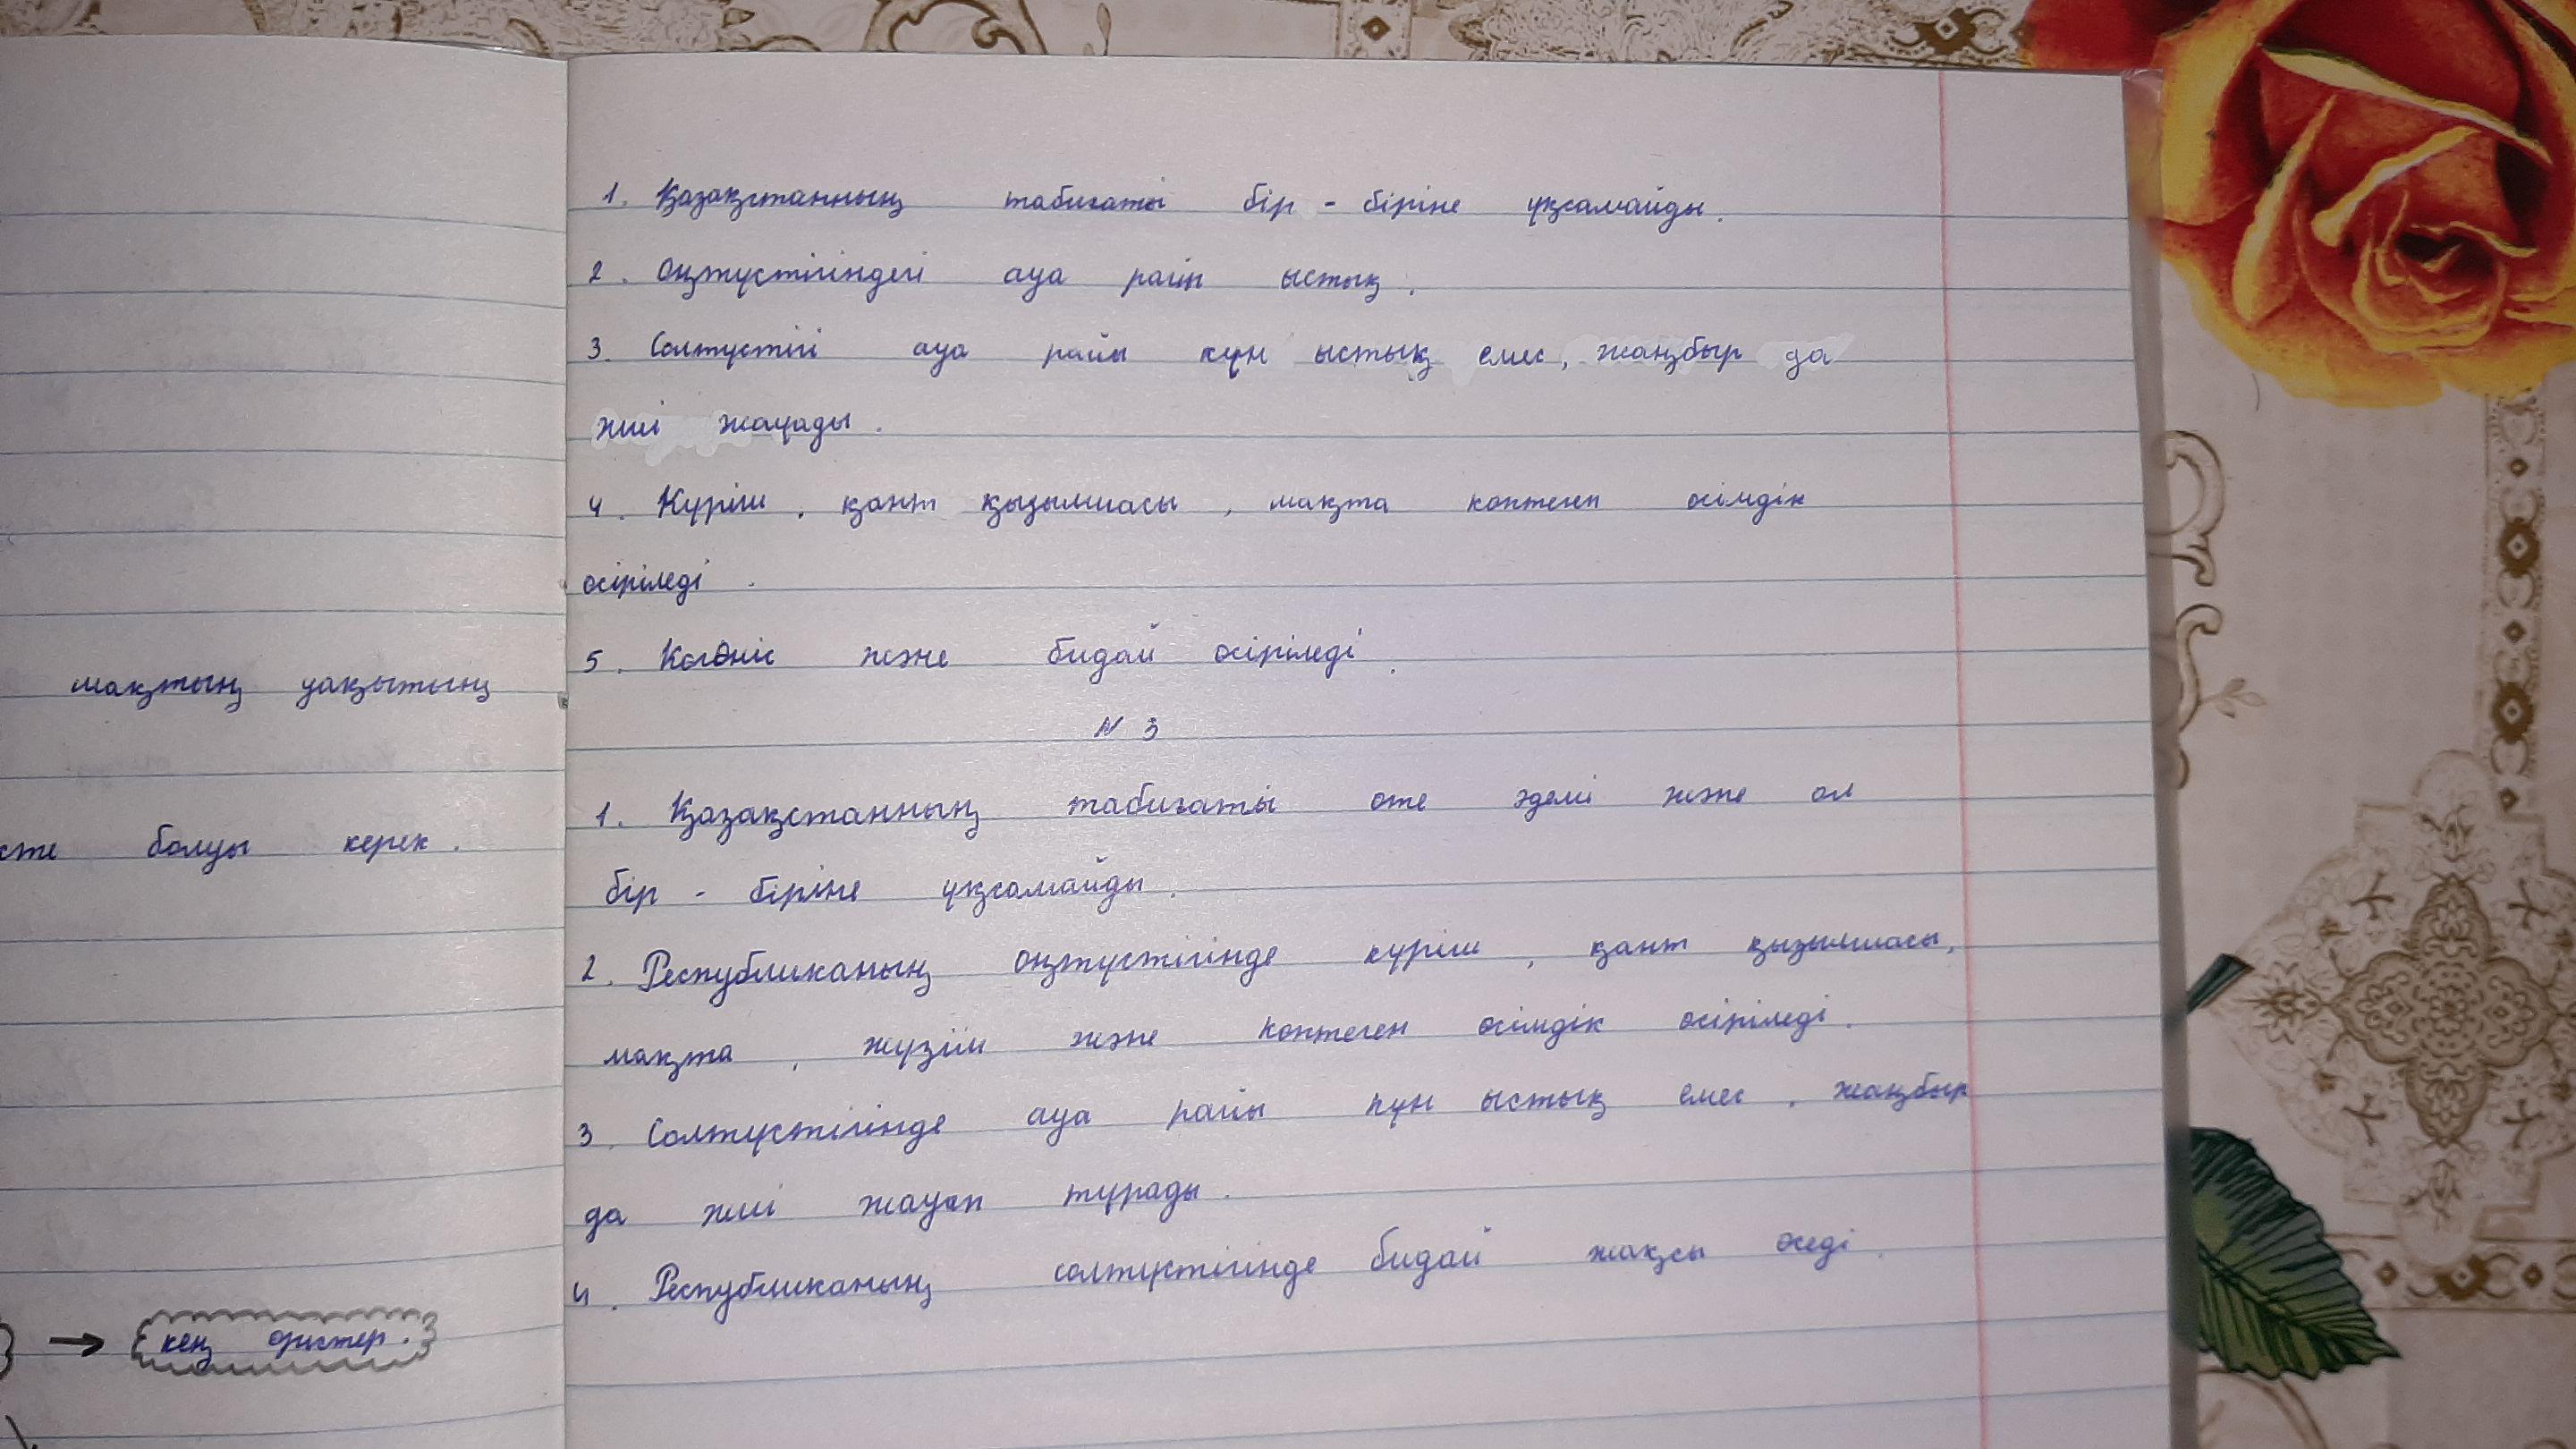 мақтың уақытың
болуы керек.
кең өрістер.
1. Қазақстанның табиғаты бір - біріне ұқсамайды.
2. Оңтүстігіндегі ауа райы ыстық.
3. Солтүстігі ауа райы күн ыстық емес, жаңбыр да
жиі жауады.
4. Күріш, қант қызылшасы, мақта көптеген өсімдік
өсіріледі.
5. Көгөніс және бидай өсіріледі.
N 3
1. Қазақстанның табиғаты өте әдемі және ол
бір - біріне ұқсамайды.
2. Республиканың оңтүстігінде күріш, қант қызылшасы,
мақта, жүзім және көптеген өсімдік өсіріледі.
3. Солтүстігінде ауа райы күн ыстық емес, жаңбыр
да жиі жауып тұрады.
4. Республиканың солтүстігінде бидай жақсы өседі.